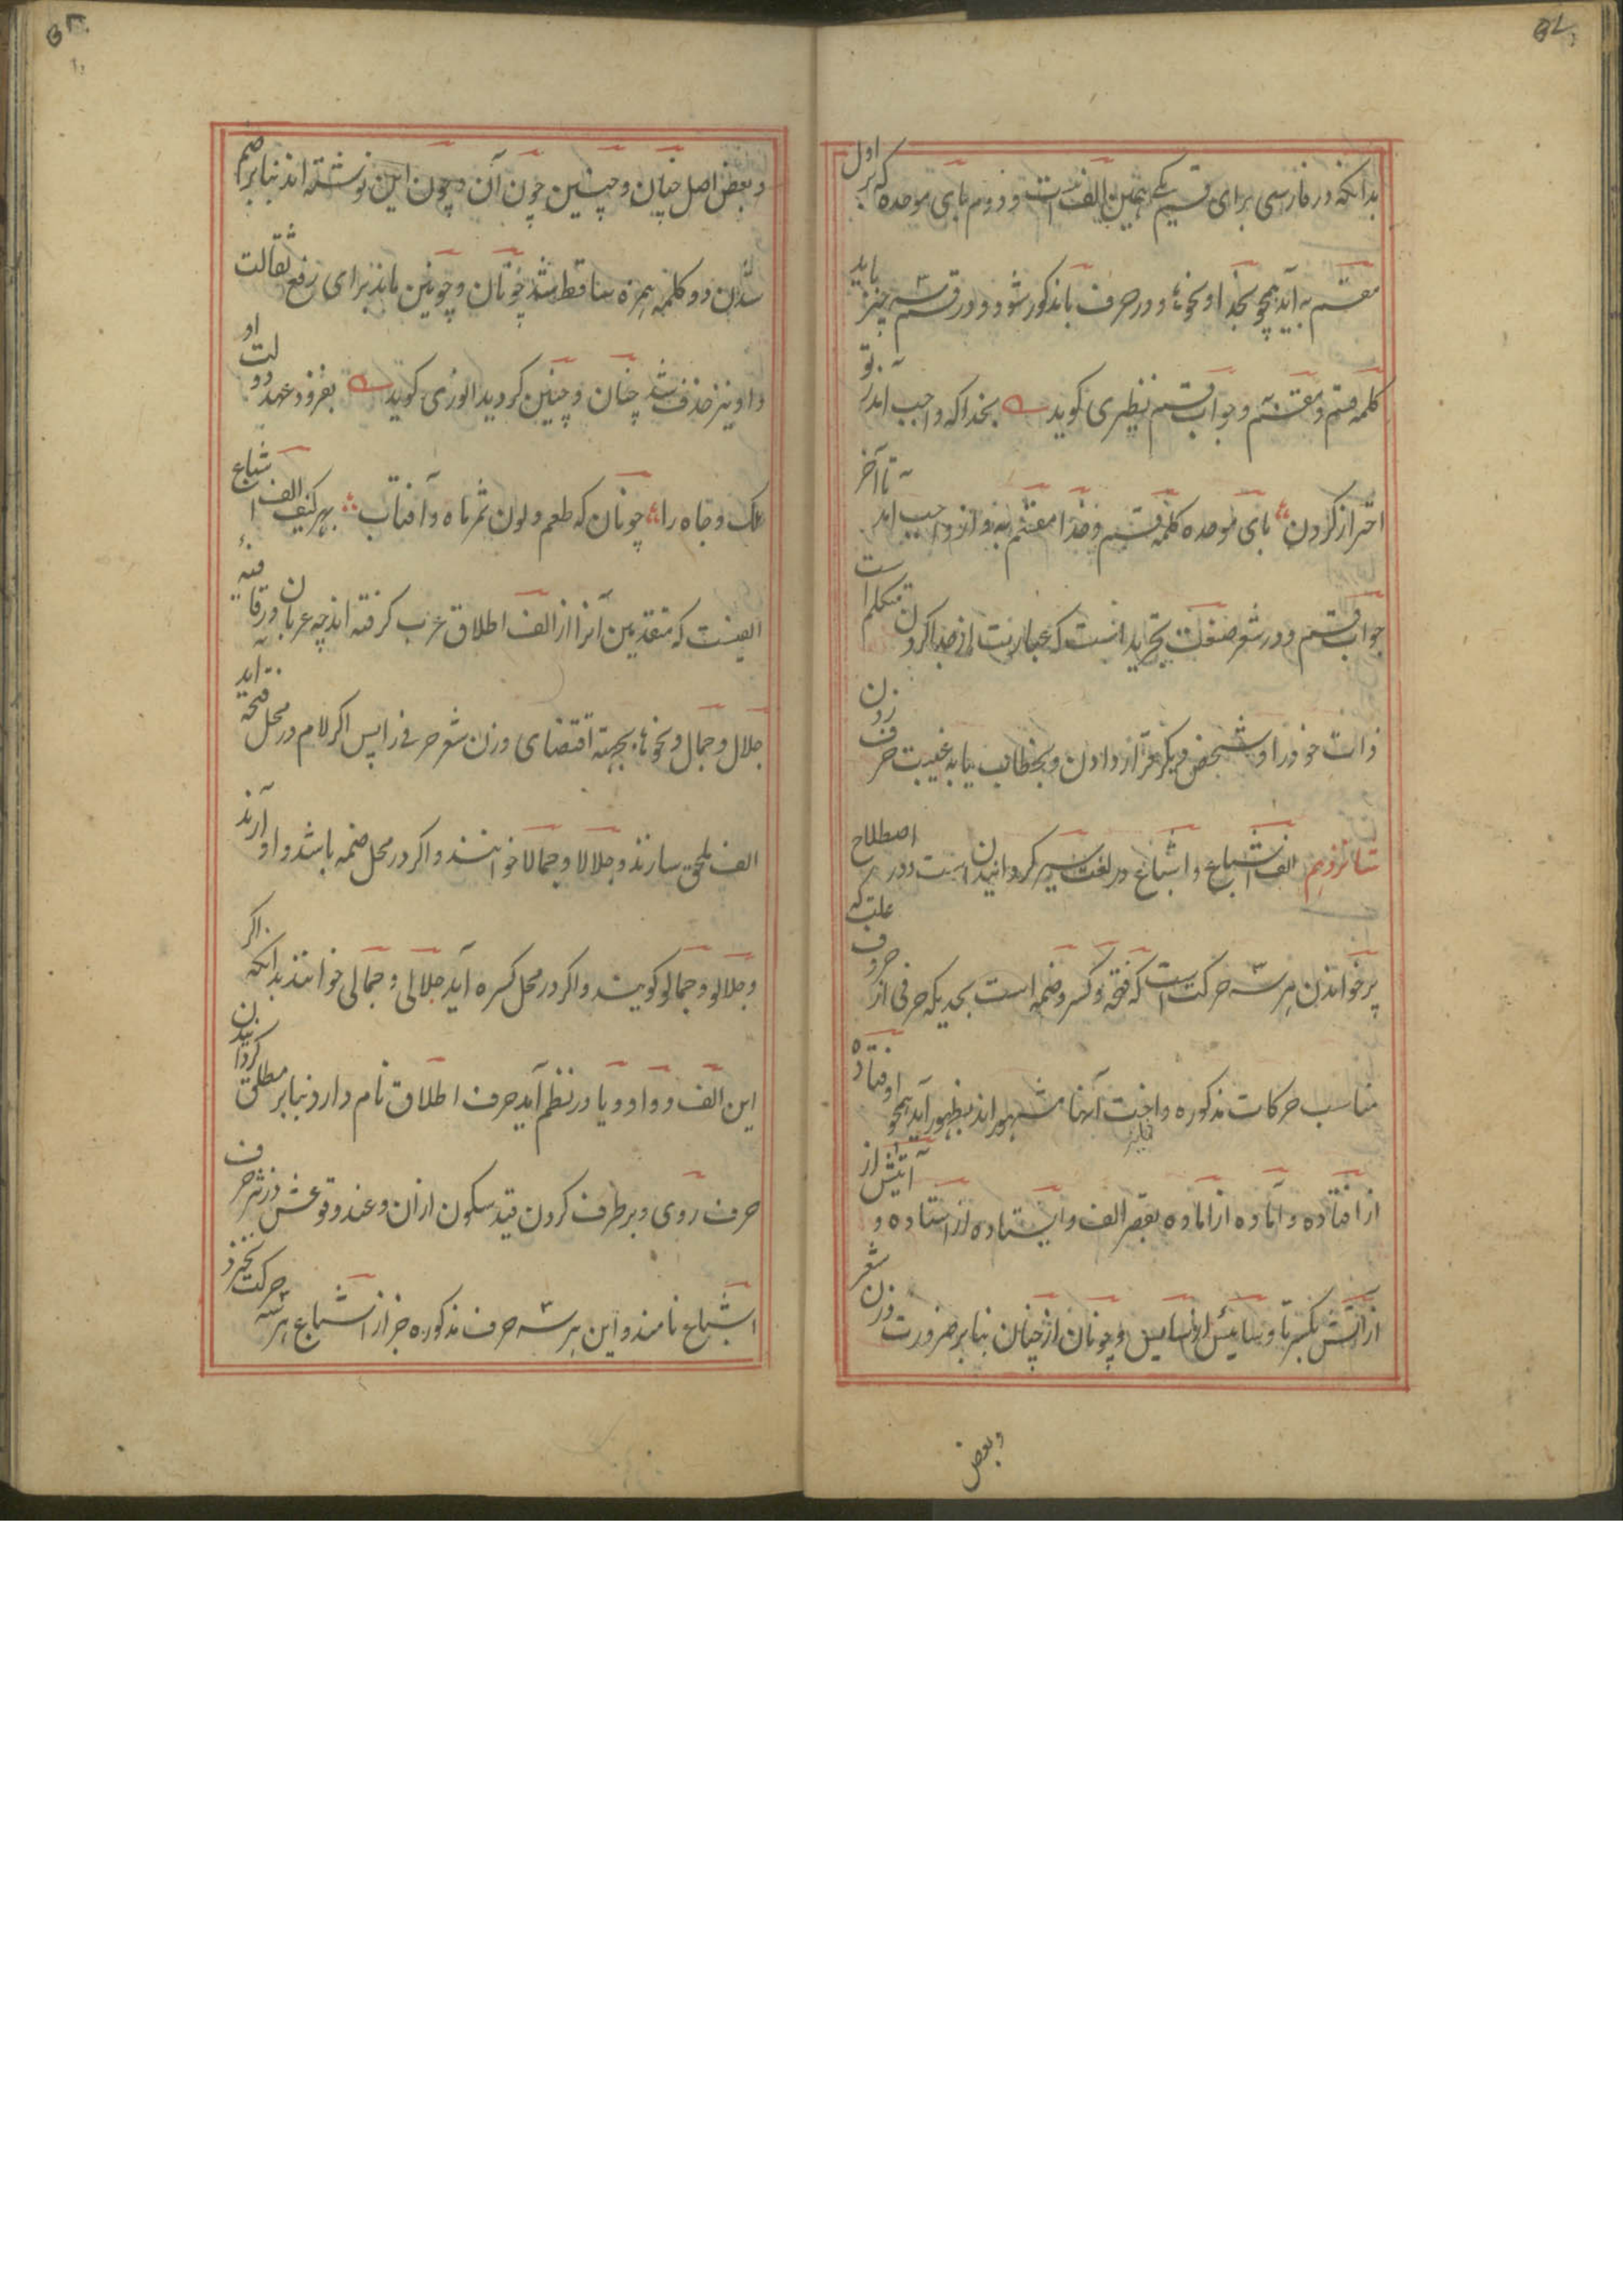 بدانکه در فارسی برای قسم یکی همین الف است و دوم بای موحده که بر اول
مقسم به آید همچو بخدا و نحوها و در حرف با مذکور شود و در قسم سه چیز باید
کلمه قسم و مقسم و جواب قسم نظیری گوید بخدا که واجب آمد ز تو
احتراز کردن بای موحده کلمه قسم و خدا مقسم به و از واجب آمد تا آخر
جواب قسم و در شعر صنعت تجرید است که عبارتست از جدا کردن متکلم
ذات خود را و شخص دیگر قرار دادن و بخطاب یا به غیبت حرف زدن
شانزدهم الف اشباع و اشباع در لغت سیر گردانیدن است و در اصطلاح
پر خواندن هر سه حرکت است که فتحه و کسره و ضمه است بحدیکه حرفی از حروف علت که
مناسب حرکات مذکوره و اخت آنها مشهوراند بظهور آید همچو اوفتاده
از افتاده و آماده از اماده بقصر الف و ایستاده از استاده و آتیش از
از آتش بکسر تا و چونان از چنان بنابر ضرورت وزن شعر
وبعض
و بعض اصل چنان و چنین چون آن و چون این نوشته اند بنابر ضم
شدن دو کلمه همزه ساقط شد چونان و چونین ماند برای رفع ثقالت
واو نیز حذف شد چنان و چنین گردید انوری گوید بفر و عهد دولت او
ملک و جاه را چونان که طعم و لون ثمر ماه و آفتاب بهر کیف الف اشباع
الفیست که متقدمین آنرا از الف اطلاق عرب گرفته اند چه عربان در قافیه
جلال و جمال و نحوها بجهة اقتضای وزن شعر حرفی زاپس اگر لام در محل فتحه آید
الف ملحق سازند و جلالا و جمالا خوانند و اگر در محل ضمه باشد واو آرند
و جلالو و جمالو گویند و اگر در محل کسره آید جلالی و جمالی خوانند بدانکه اگر
این الف و واو و یا در نظم آید حرف اطلاق نام دارد بنابر مطلق گردانیدن
حرف روی و برطرف کردن قید سکون از ان و عند وقوعش در نثر حرف
اشباع نامند و این هر سه حرف مذکوره جز از اشباع هر سه حرکت نخیزد